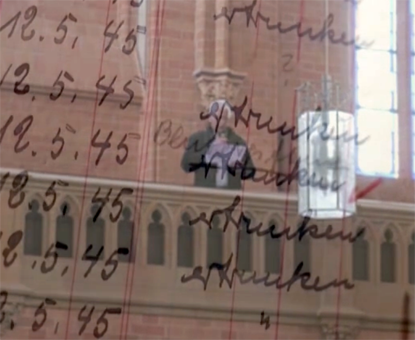 ertrunken
12.5.45
?
12.5.45 ertrunken
12.5.45 ertrunken
12.5.45 ertrunken
12.5.45 ertrunken
5.45 "